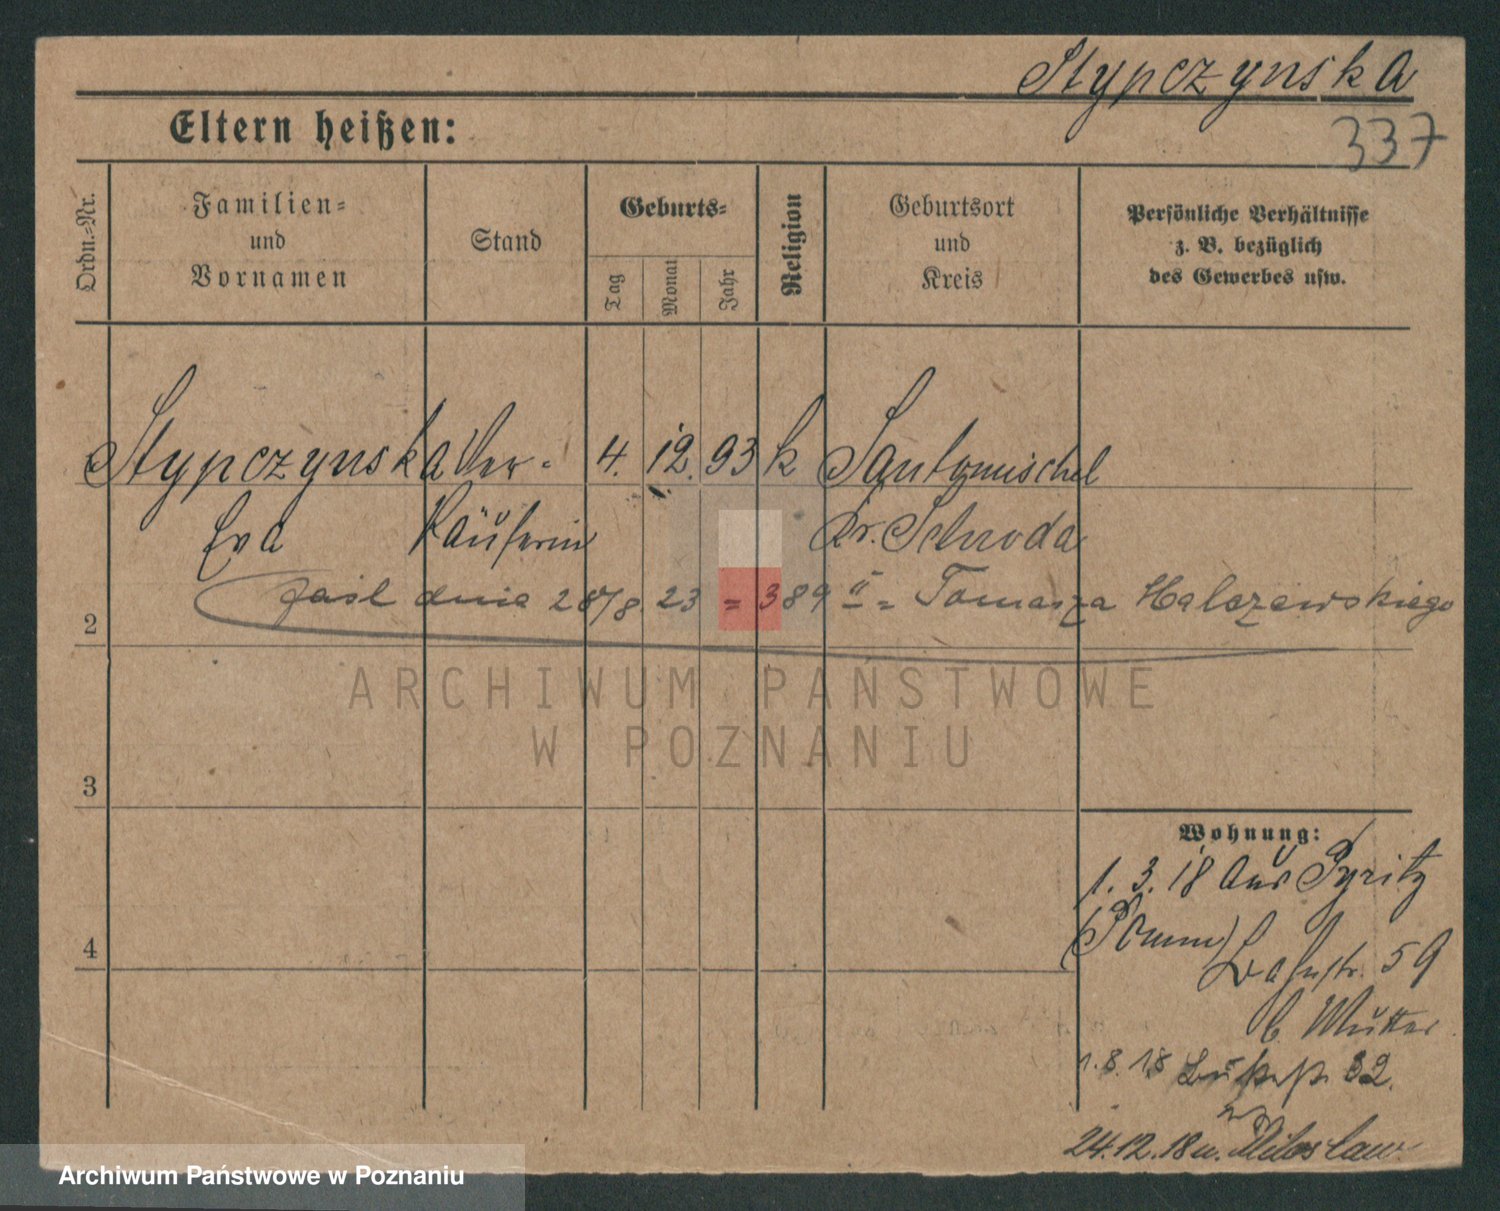 Stypczynska
337
Eltern heißen:
Ordn.-Nr.
Familien-
und
Vornamen
Stand
Geburts-
Tag
Monat
Jahr
Religion
Geburtsort
und
Kreis
Persönliche Verhältnisse
z. B. bezüglich
des Gewerbes usw.
Stypczynska Ver- 4. 12. 93 k Santomischel
Eva käuferin Kr. Schroda
zaśl dnia 28/8 23 = 389 II = Tomasza Halczewskiego
2
ARCHIWUM PAŃSTWOWE
W POZNANIU
3
Wohnung:
1. 3. 18 aus Pyritz
(Pomm)
59
4
b. Mutter
1. 8. 18 32.
24.12.18 n. Miloslaw
Archiwum Państwowe w Poznaniu